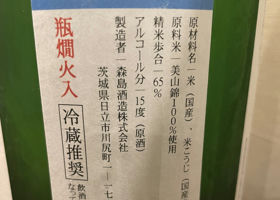 原材料名－米（国産）、米こうじ（国産
原料米－美山錦100％使用
精米歩合－65％
アルコール分－15度（原酒）
製造者－森島酒造株式会社
茨城県日立市川尻町一－一七
瓶燗火入
冷蔵推奨
飲酒
なって